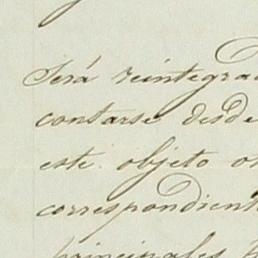 Será reintegrad
contarse desde
este objeto o
correspondient
principales